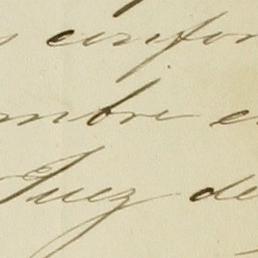 s confor
mbre en
Juez de